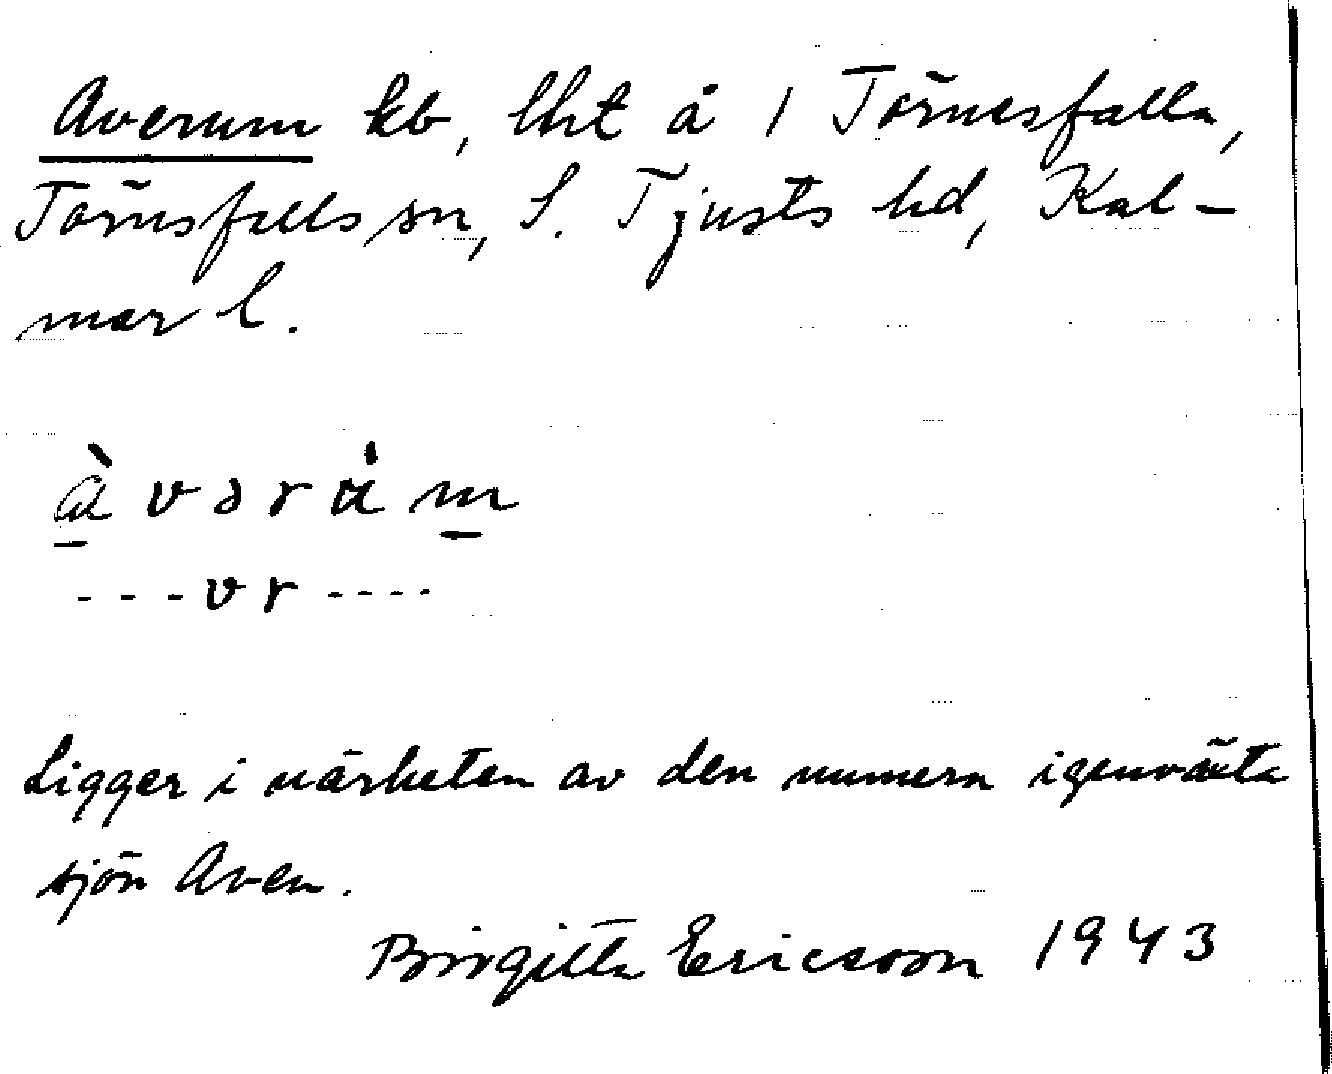 Averum kb, lht å 1 Törnesfalla,
Törnsfalls sn, S. Tjusts hd, Kal-
mar l.
àvərȧm
---vr----
Ligger i närheten av den numera igenväxta
sjön Aven.
Birgitta Ericsson 1943